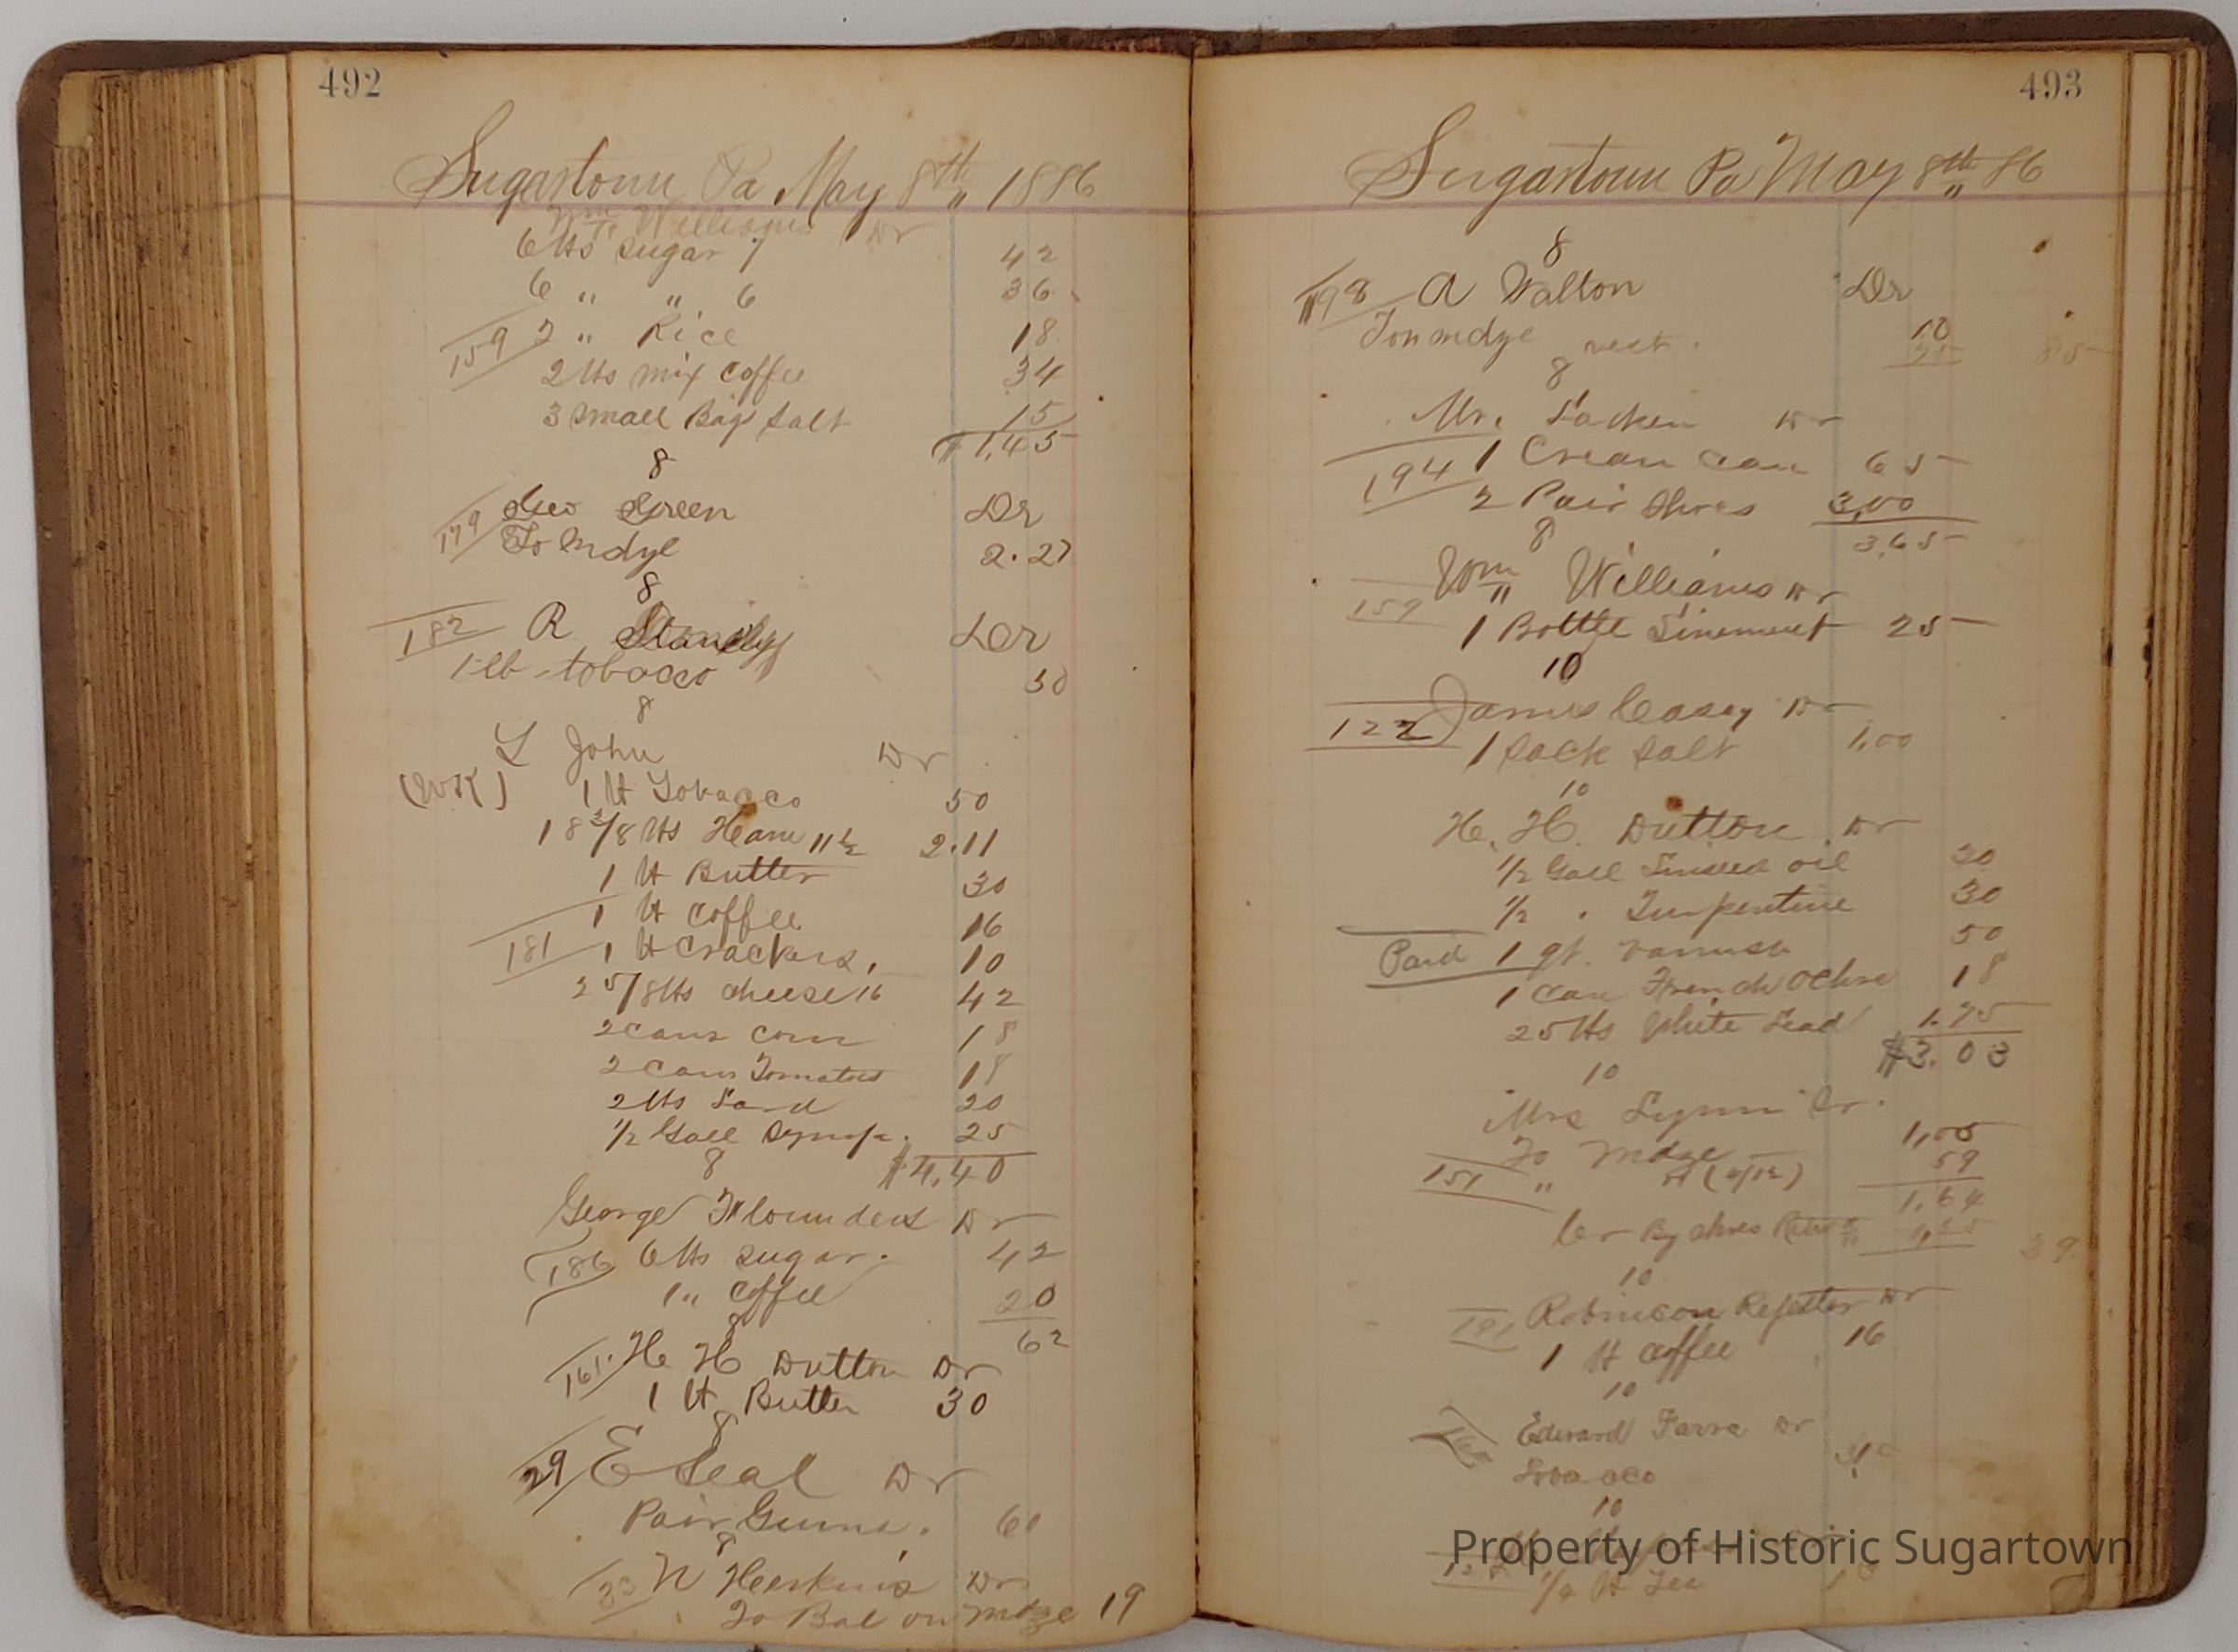 492
Sugartown Pa May 8th 1886
Wm Williams Dr
6 lbs Sugar 7 42
6 " " 6 36
159 2 " Rice 18
2 lbs mix Coffee 34
3 Small Bags Salt 15
$1,45
8
179 Geo Green Dr
To Mdge 2.27
8
182 R Dr
1 lb tobacco 30
8
L John Dr
(WK) 1 lb Tobacco 50
18 3/8 lbs Ham 11½ 2.11
1 lb Butter 30
1 lb Coffee 16
181 1 lb Crackers, 10
2 5/8 lbs cheese 16 42
2 cans corn 18
2 cans Tomatoes 18
2 lbs Lard 20
1/2 Gall Syrup. 25
$4,40
8
George Flounders Dr
186 6 lbs Sugar. 42
1 " Coffee 20
62
8
161. H H Dutton Dr
1 lb Butter 30
8
29 E Seal Dr
Pair Gums. 60
8
33 N Heskins Dr
To Bal on Mdge 19
493
Sugartown Pa May 8th 86
8
198 A Walton Dr
To mdge 10
vest. 85
8
Mr. Dr
194 1 Cream can 65
2 Pair Shoes 3,00
3,65
8
Wm Williams Dr
159 1 Bottle Linement 25
10
James Casey Dr
122 1 Sack Salt 1,00
10
H. H. Dutton Dr
1/2 Gall Linseed oil 30
1/2 " Turpentine 30
Paid 1 qt. varnish 50
1 can French Ochre 18
25 lbs White Lead 1.75
$3.03
10
Mrs Lynn Dr.
To Mdge 1,05
151 " 59
1,64
Cr By shoes 1,25
39
10
191 Robinson Dr
1 lb Coffee 16
10
Edward Farra Dr
Tobacco
10
1/2 lb Tea
Property of Historic Sugartown